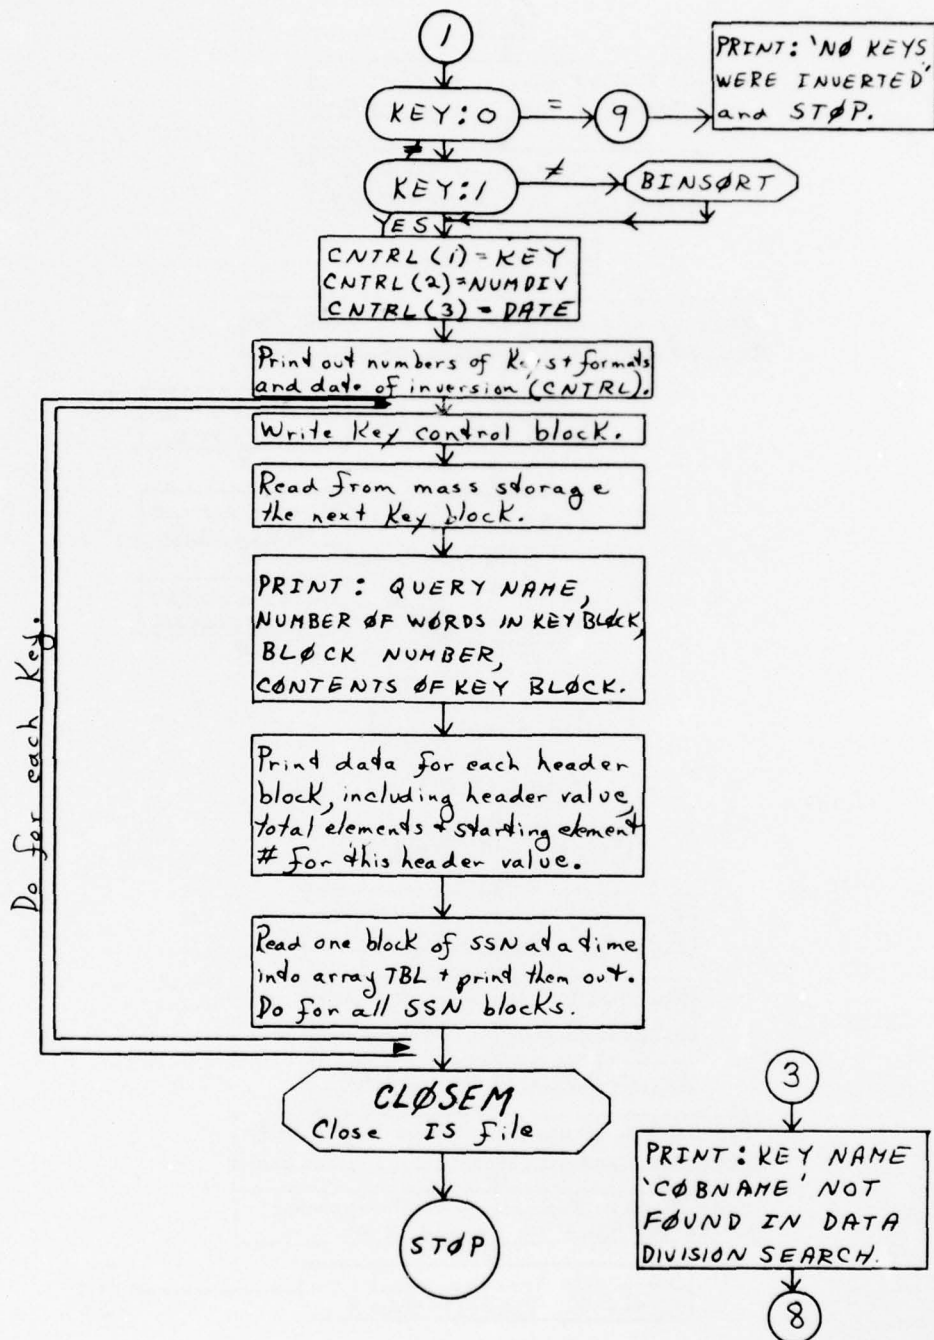 1
PRINT: 'NØ KEYS
WERE INVERTED'
and STØP.
KEY:0
=
9
≠
KEY:1
≠
BINSØRT
YES
CNTRL(1)=KEY
CNTRL(2)=NUMDIV
CNTRL(3)=DATE
Print out numbers of Keys + formats
and date of inversion (CNTRL).
Write Key control block.
Read from mass storage
the next Key block.
PRINT: QUERY NAME,
NUMBER ØF WØRDS IN KEY BLØCK,
BLØCK NUMBER,
CØNTENTS ØF KEY BLØCK.
Do for each Key.
Print data for each header
block, including header value,
total elements + starting element
# for this header value.
Read one block of SSN at a time
into array TBL + print them out.
Do for all SSN blocks.
CLØSEM
Close IS file
STØP
3
PRINT: KEY NAME
'CØBNAME' NOT
FØUND IN DATA
DIVISION SEARCH.
8